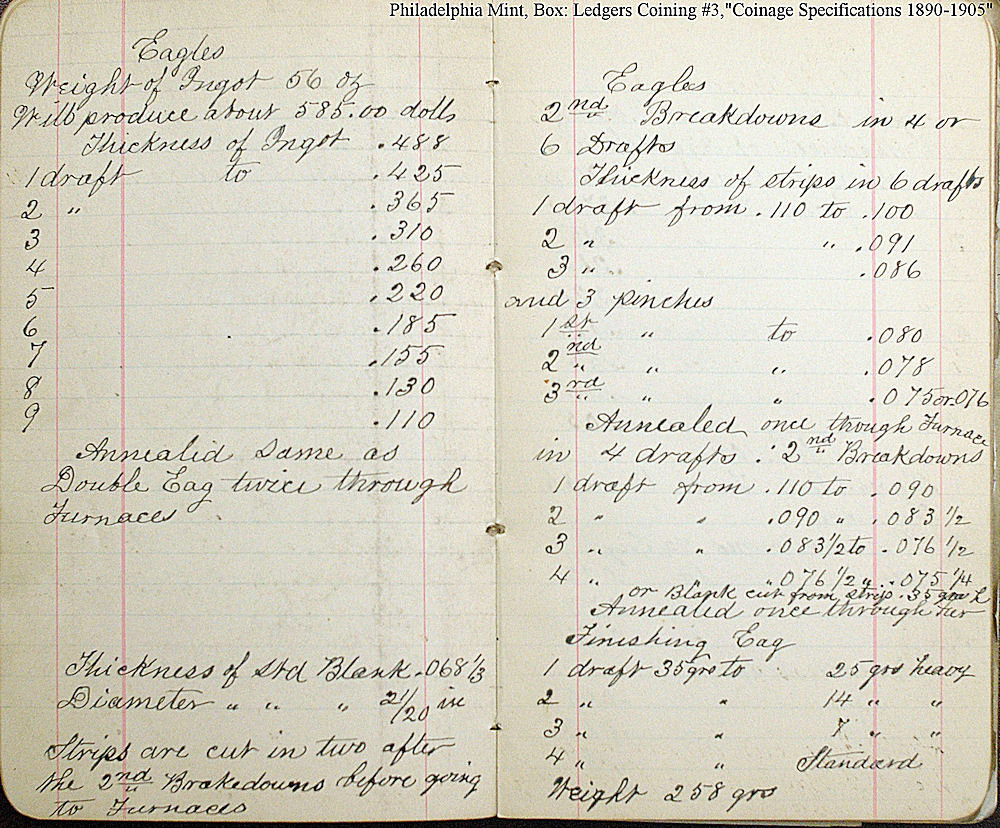 Philadelphia Mint, Box: Ledgers Coining #3,"Coinage Specifications 1890-1905"
Eagles
Weight of Ingot 56 oz
Will produce about 585.00 dolls
Thickness of Ingot .488
1 draft to .425
2 " .365
3 .310
4 .260
5 .220
6 .185
7 .155
8 .130
9 .110
Annealid same as
Double Eag twice through
Furnaces
Thickness of Std Blank .068 1/3
Diameter " " " 21/20 in
Strips are cut in two after
the 2nd Brakedowns before going
to Furnaces
Eagles
2nd Breakdowns in 4 or
6 Drafts
Thickness of strips in 6 drafts
1 draft from .110 to .100
2 " " .091
3 " .086
and 3 pinches
1st " to .080
2nd " " " .078
3rd " " " .075 or .076
Annealed once though Furnace
in 4 drafts . 2nd Breakdowns
1 draft from .110 to .090
2 " " .090 " .083 1/2
3 " " .083 1/2 to .076 1/2
4 " " .076 1/2 " .075 1/4
or Blank cut from strip .35 grs h
Annealed once through Fur
Finishing Eag
1 draft 35 grs to 25 grs heavy
2 " " 14 " "
3 " " 7 " "
4 " " Standard
Weight 258 grs